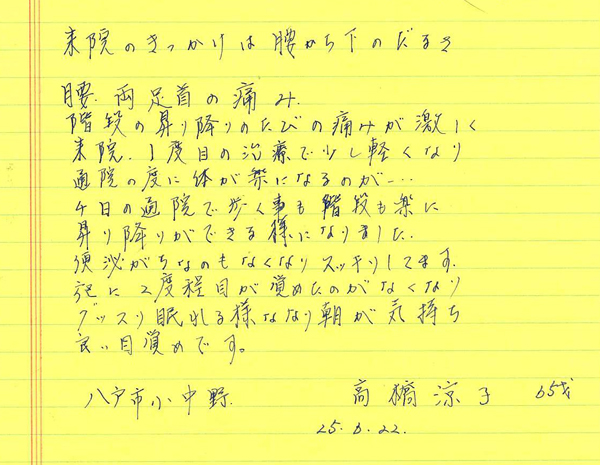 来院のきっかけは腰から下のだるさ
腰.両足首の痛み.
階段の昇り降りのたびの痛みが激しく
来院.1度目の治療で少し軽くなり
通院の度に体が楽になるのが…
4日の通院で歩く事も階段も楽に
昇り降りができる様になりました.
便泌がちなのもなくなりスッキリしてます.
夜に2度程目が覚めたのがなくなり
グッスリ眠れる様なり朝が気持ち
良い目覚めです。
八戸市小中野.
高橋涼子 65才
25.6.22.